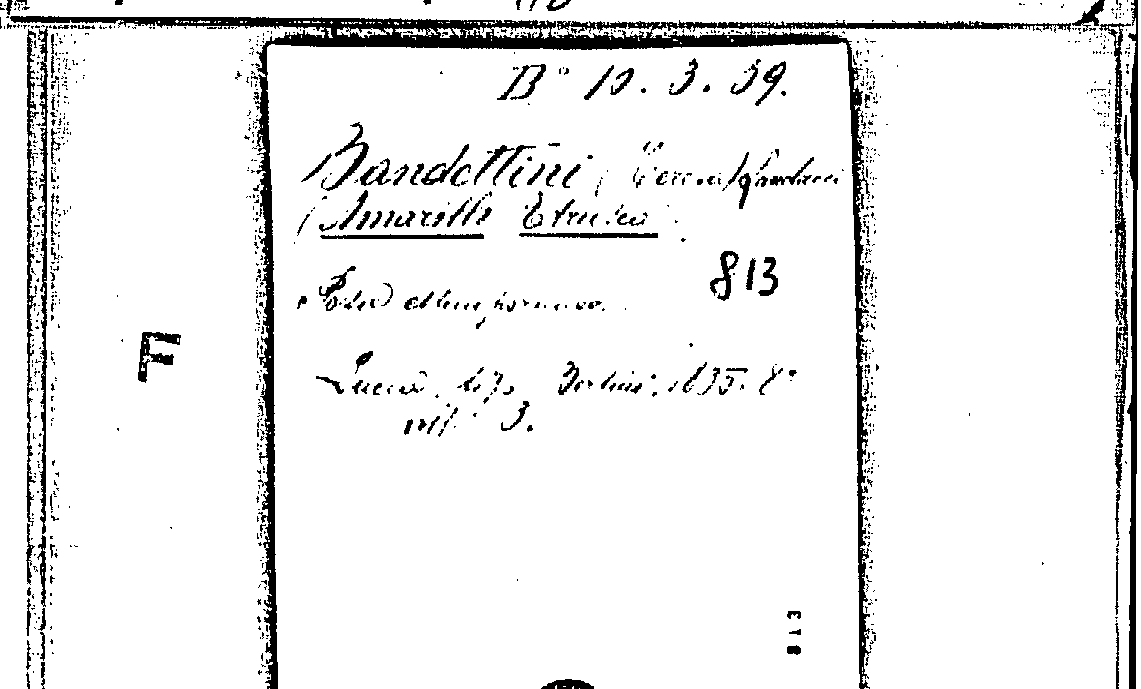 B° 10. 3. 39.
Bandettini (Teresa) Landucci
(Amarilli Etrusca).
813
Poesie estemporanee.
F
Lucca, tip. Bertini, 1835. 8°
vol. 3.
813